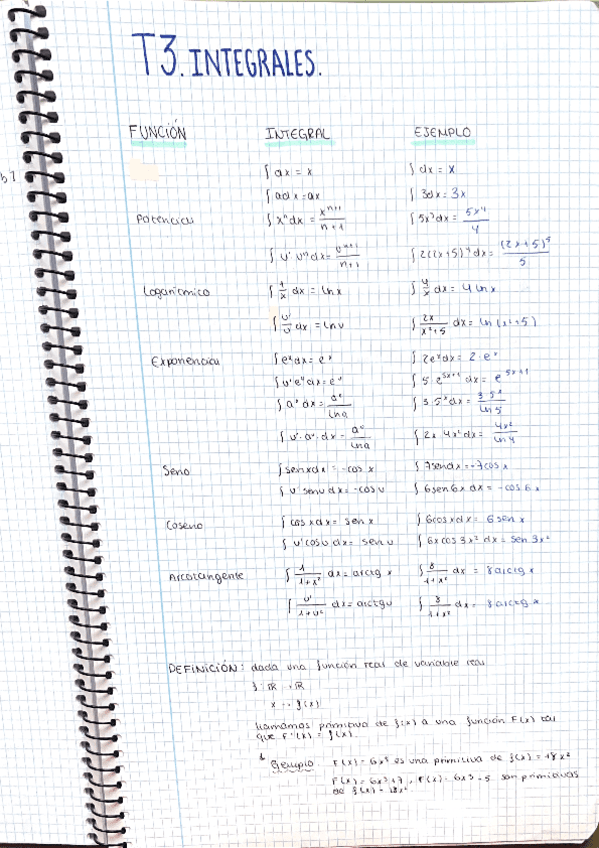 T3. INTEGRALES.
FUNCIÓN INTEGRAL EJEMPLO
∫ dx = x ∫ dx = x
∫ adx = ax ∫ 3dx = 3x
Potencial ∫ xⁿ dx = xⁿ⁺¹/n+1 ∫ 5x³dx = 5x⁴/4
∫ u' uⁿ dx = uⁿ⁺¹/n+1 ∫ 2(2x+5)⁴dx = (2x+5)⁵/5
Logarítmico ∫ 1/x dx = ln x ∫ 4/x dx = 4 ln x
∫ u'/u dx = ln u ∫ 2x/x²+5 dx = ln (x²+5)
Exponencial ∫ eˣ dx = eˣ ∫ 2eˣdx = 2·eˣ
∫ u'eᵘ dx = eᵘ ∫ 5·e⁵ˣ⁺¹ dx = e⁵ˣ⁺¹
∫ aˣ dx = aˣ/ln a ∫ 3·5ˣ dx = 3·5ˣ/ln 5
∫ u'·aᵘ·dx = aᵘ/ln a ∫ 2x 4x² dx = 4x²/ln 4
Seno ∫ senxdx = -cos x ∫ 7sendx = -7cos x
∫ u' senu dx = -cos u ∫ 6sen6x dx = -cos 6x
Coseno ∫ cos xdx = sen x ∫ 6cosxdx = 6sen x
∫ u'cosu dx = sen u ∫ 6x cos 3x² dx = sen 3x²
Arcotangente ∫ 1/1+x² dx = arctg x ∫ 8/1+x² dx = 8arctg x
∫ u'/1+u² dx = arctgu ∫ 8/1+x² dx = 8arctg x
DEFINICIÓN: dada una función real de variable real
f: ℝ → ℝ
x → f(x)
llamamos primitiva de f(x) a una función F(x) tal
que F'(x) = f(x).
Ejemplo F(x) = 6x³ es una primitiva de f(x) = 18x²
F(x) = 6x³+7, F(x) = 6x³-5 son primitivas
de f(x) = 18x²